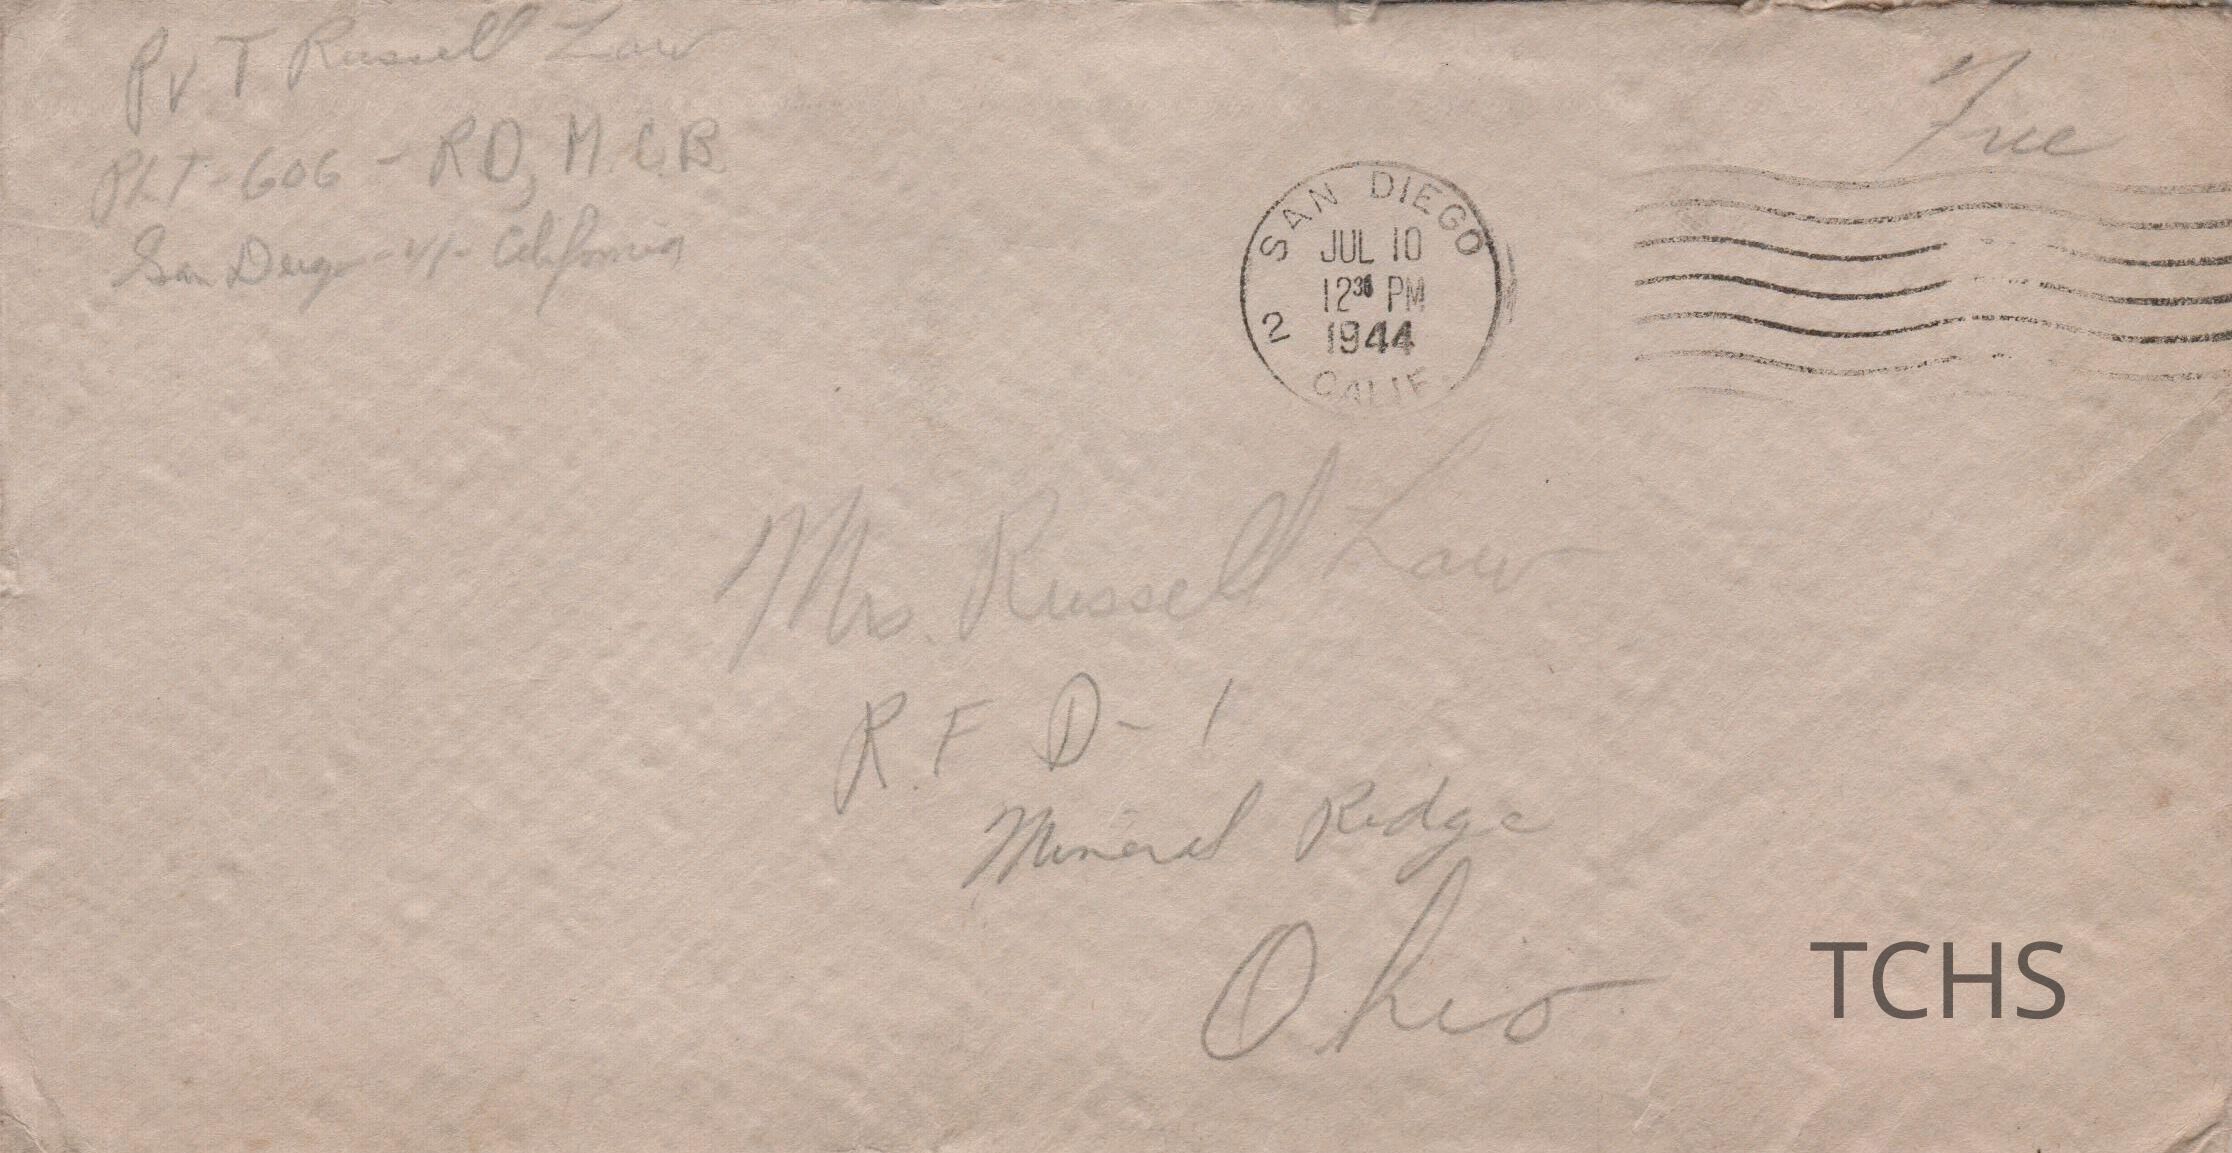 Pvt Russell Law
PLT-606 - RD, M.C.B
San Diego - 41 - California
Free
SAN DIEGO
JUL 10
12 30 PM
2 1944
CALIF.
Mrs. Russell Law
R.F D-1
Mineral Ridge
Ohio
TCHS